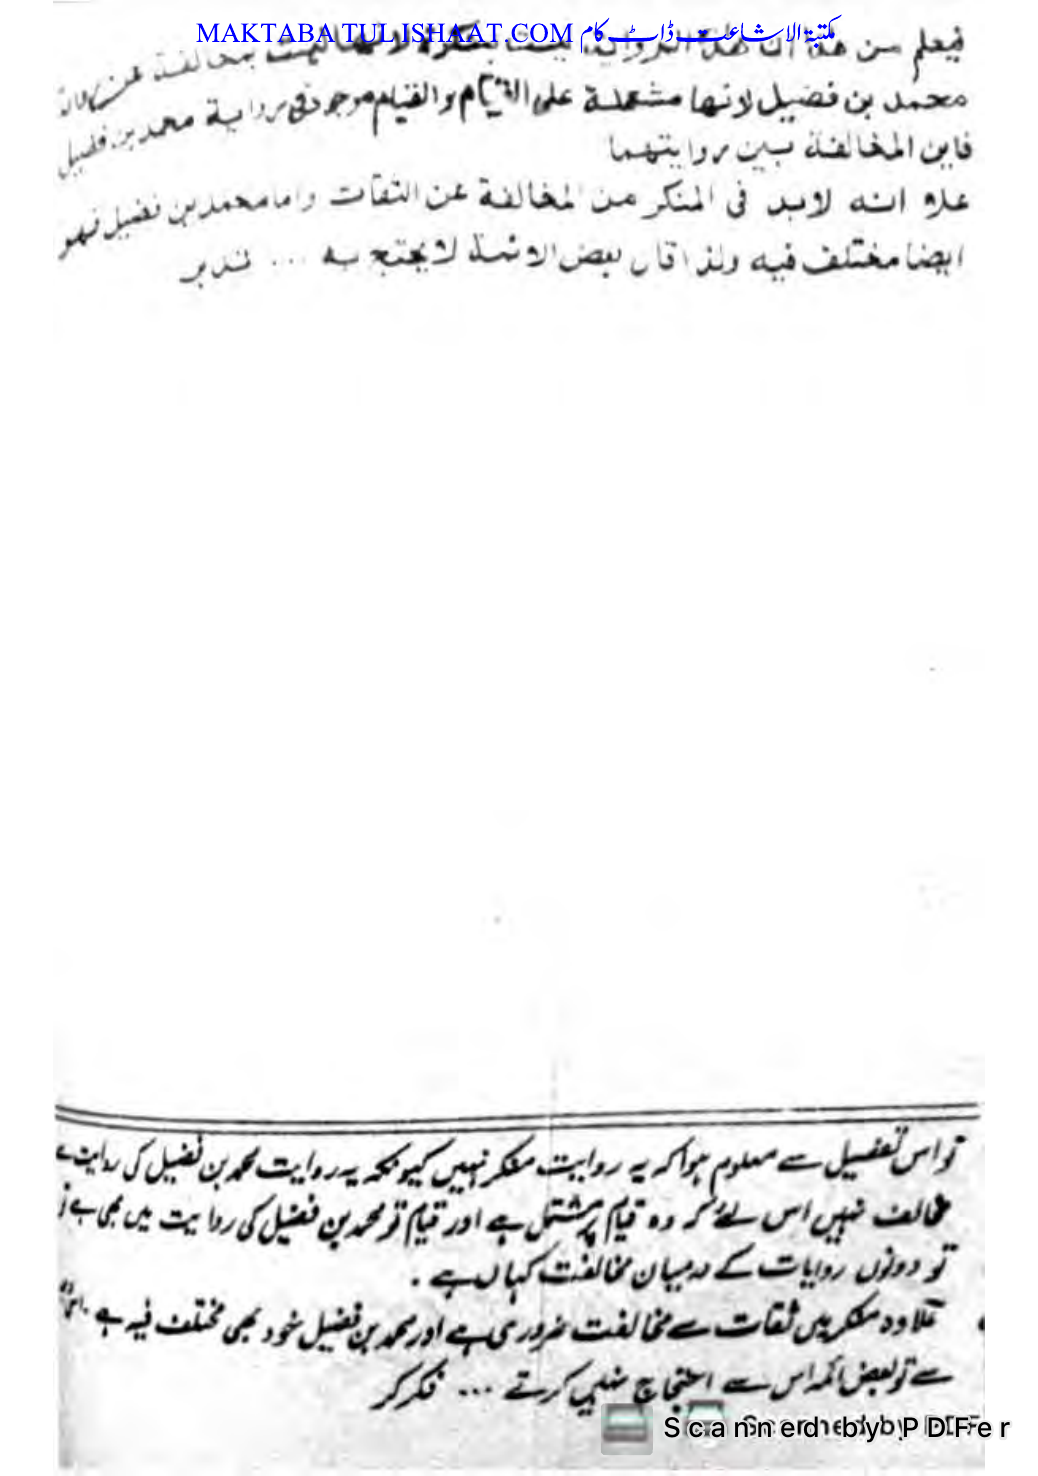 MAKTABA TUL ISHAAT.COM مکتبۃ الاشاعت ڈاٹ کام
فيعلم من هذا ان هذه الرواية ليست بمنكرة لانها ليست بمخالفة عن
محمد بن فضيل لانها مشتملة على القيام والقيام موجود في رواية محمد بن فضيل
فاين المخالفة بين روايتهما
علا انه لابد في المنكر من المخالفة عن الثقات واما محمد بن فضيل فهو
ايضا مختلف فيه ولذا قال بعض الائمة لا يحتج به ... تدبر
تو اس تفصیل سے معلوم ہوا کہ یہ روایت منکر نہیں کیونکہ یہ روایت محمد بن فضیل کی روایت سے
مخالف نہیں اس لئے کہ وہ قیام پر مشتمل ہے اور قیام تو محمد بن فضیل کی روایت میں بھی ہے
تو دونوں روایات کے درمیان مخالفت کہاں ہے .
علاوہ منکر میں ثقات سے مخالفت ضروری ہے اور محمد بن فضیل خود بھی مختلف فیہ ہے
سے تو بعض ائمہ اس سے احتجاج نہیں کرتے ... فکر کر
Scanned by PDFer